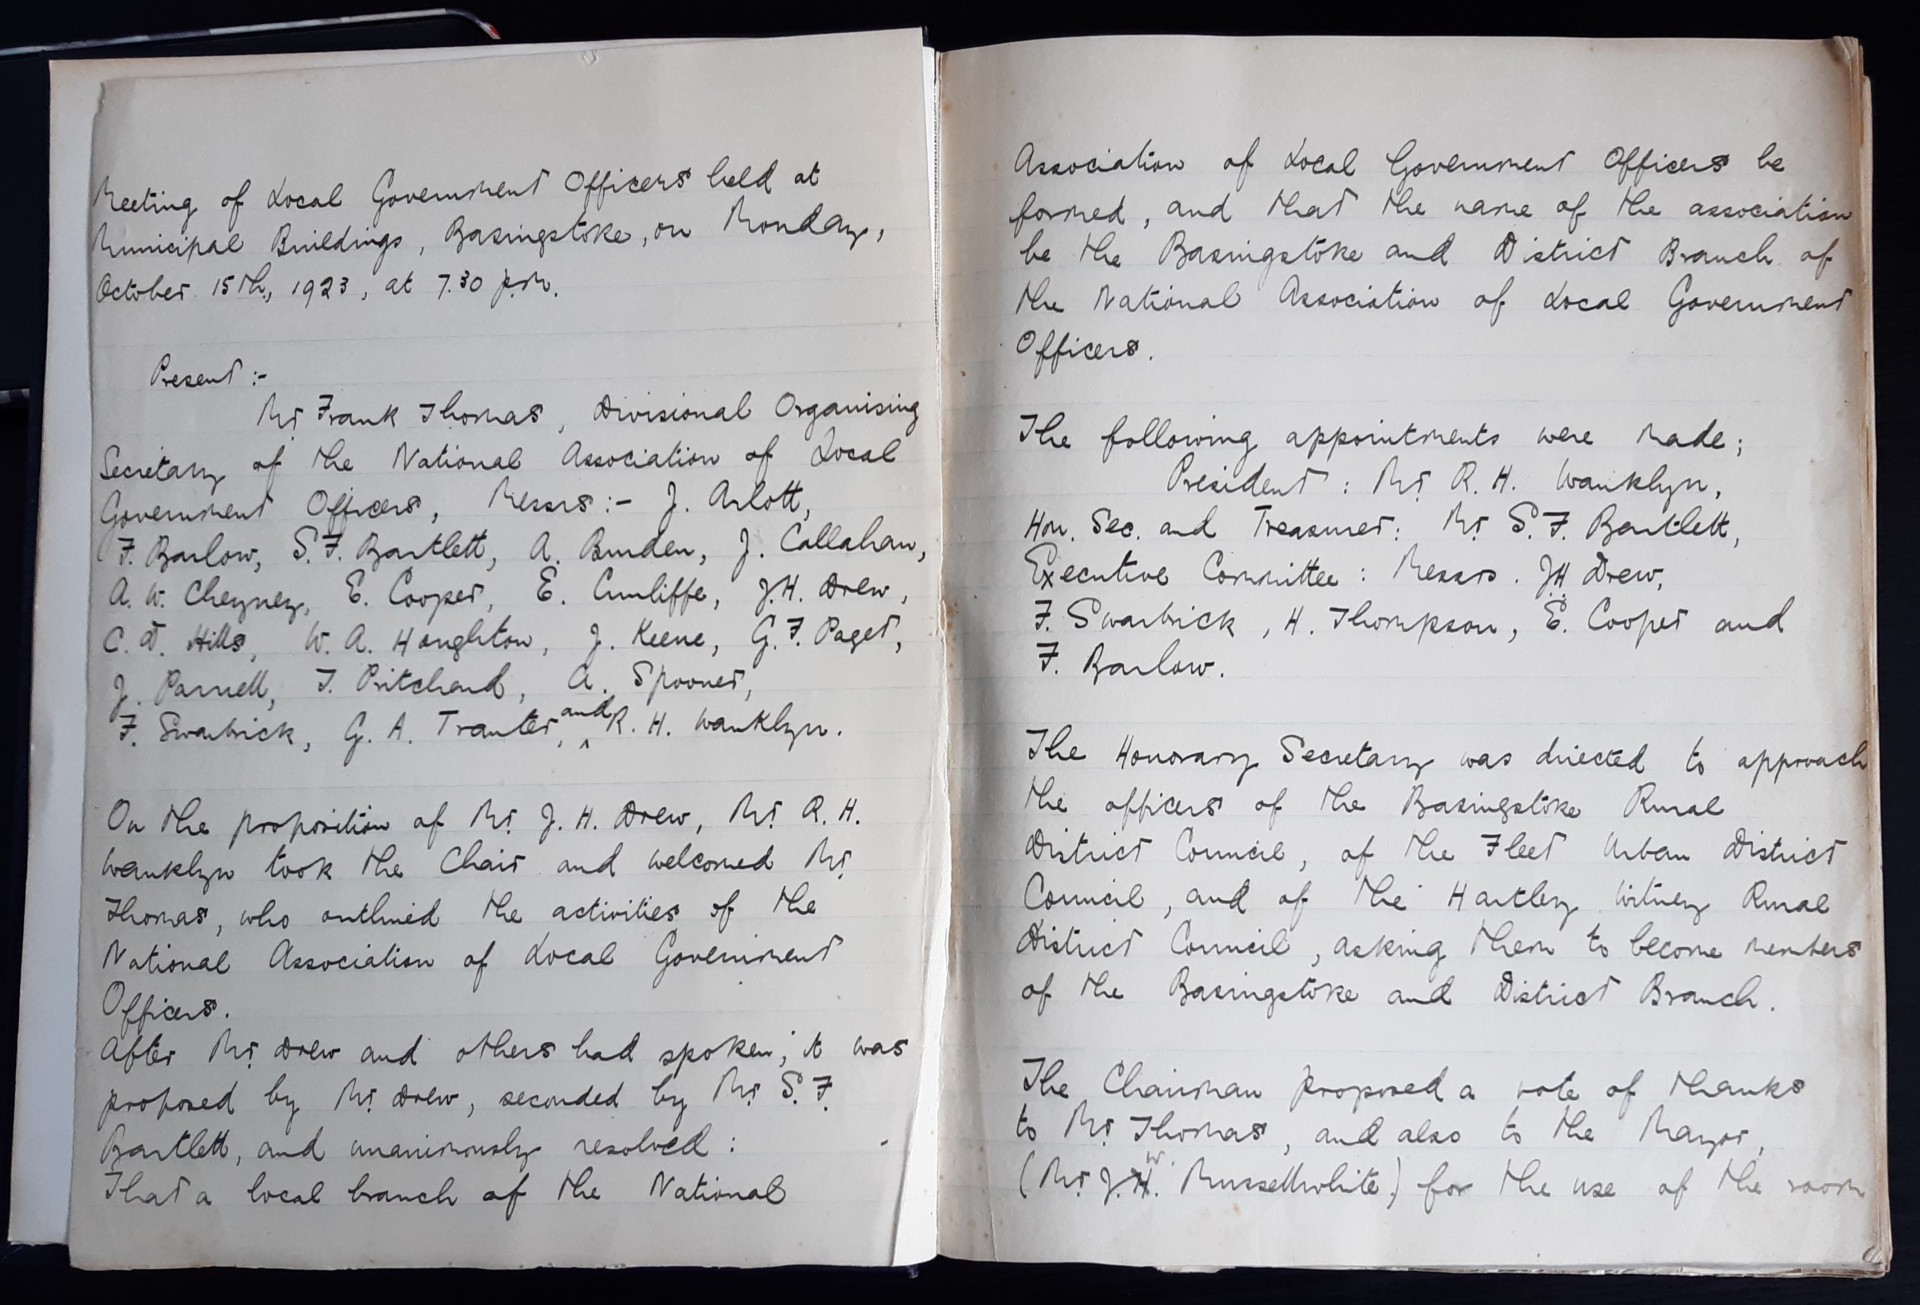 Meeting of Local Government Officers held at
Municipal Buildings, Basingstoke, on Monday,
October 15th, 1923, at 7.30 p.m.
Present :-
Mr Frank Thomas, Divisional Organising
Secretary of the National Association of Local
Government Officers, Messrs :- J. Arlott,
F. Barlow, S.F. Bartlett, A. Burden, J. Callahan,
A. W. Cheyney, E. Cooper, E. Cunliffe, J.H. Drew,
C. D. Hills, W. A. Houghton, J. Keene, G. F. Paget,
J. Parnell, T. Pritchard, A. Spooner,
F. Swarbrick, G. A. Tranter, and R. H. Wanklyn.
On the proposition of Mr. J. H. Drew, Mr. R. H.
Wanklyn took the Chair and welcomed Mr.
Thomas, who outlined the activities of the
National Association of Local Government
Officers.
After Mr. Drew and others had spoken; it was
proposed by Mr. Drew, seconded by Mr S. F.
Bartlett, and unanimously resolved :
That a local branch of the National
Association of Local Government Officers be
formed, and that the name of the association
be the Basingstoke and District Branch of
the National Association of Local Government
Officers.
The following appointments were made;
President : Mr. R. H. Wanklyn,
Hon. Sec. and Treasurer : Mr. S. F. Bartlett,
Executive Committee : Messrs. J.H. Drew,
F. Swarbrick, H. Thompson, E. Cooper and
F. Barlow.
The Honorary Secretary was directed to approach
the officers of the Basingstoke Rural
District Council, of the Fleet Urban District
Council, and of the Hartley Witney Rural
District Council, asking them to become members
of the Basingstoke and District Branch.
The Chairman proposed a vote of thanks
to Mr. Thomas, and also to the Mayor,
(Mr J. W. Mussellwhite) for the use of the room